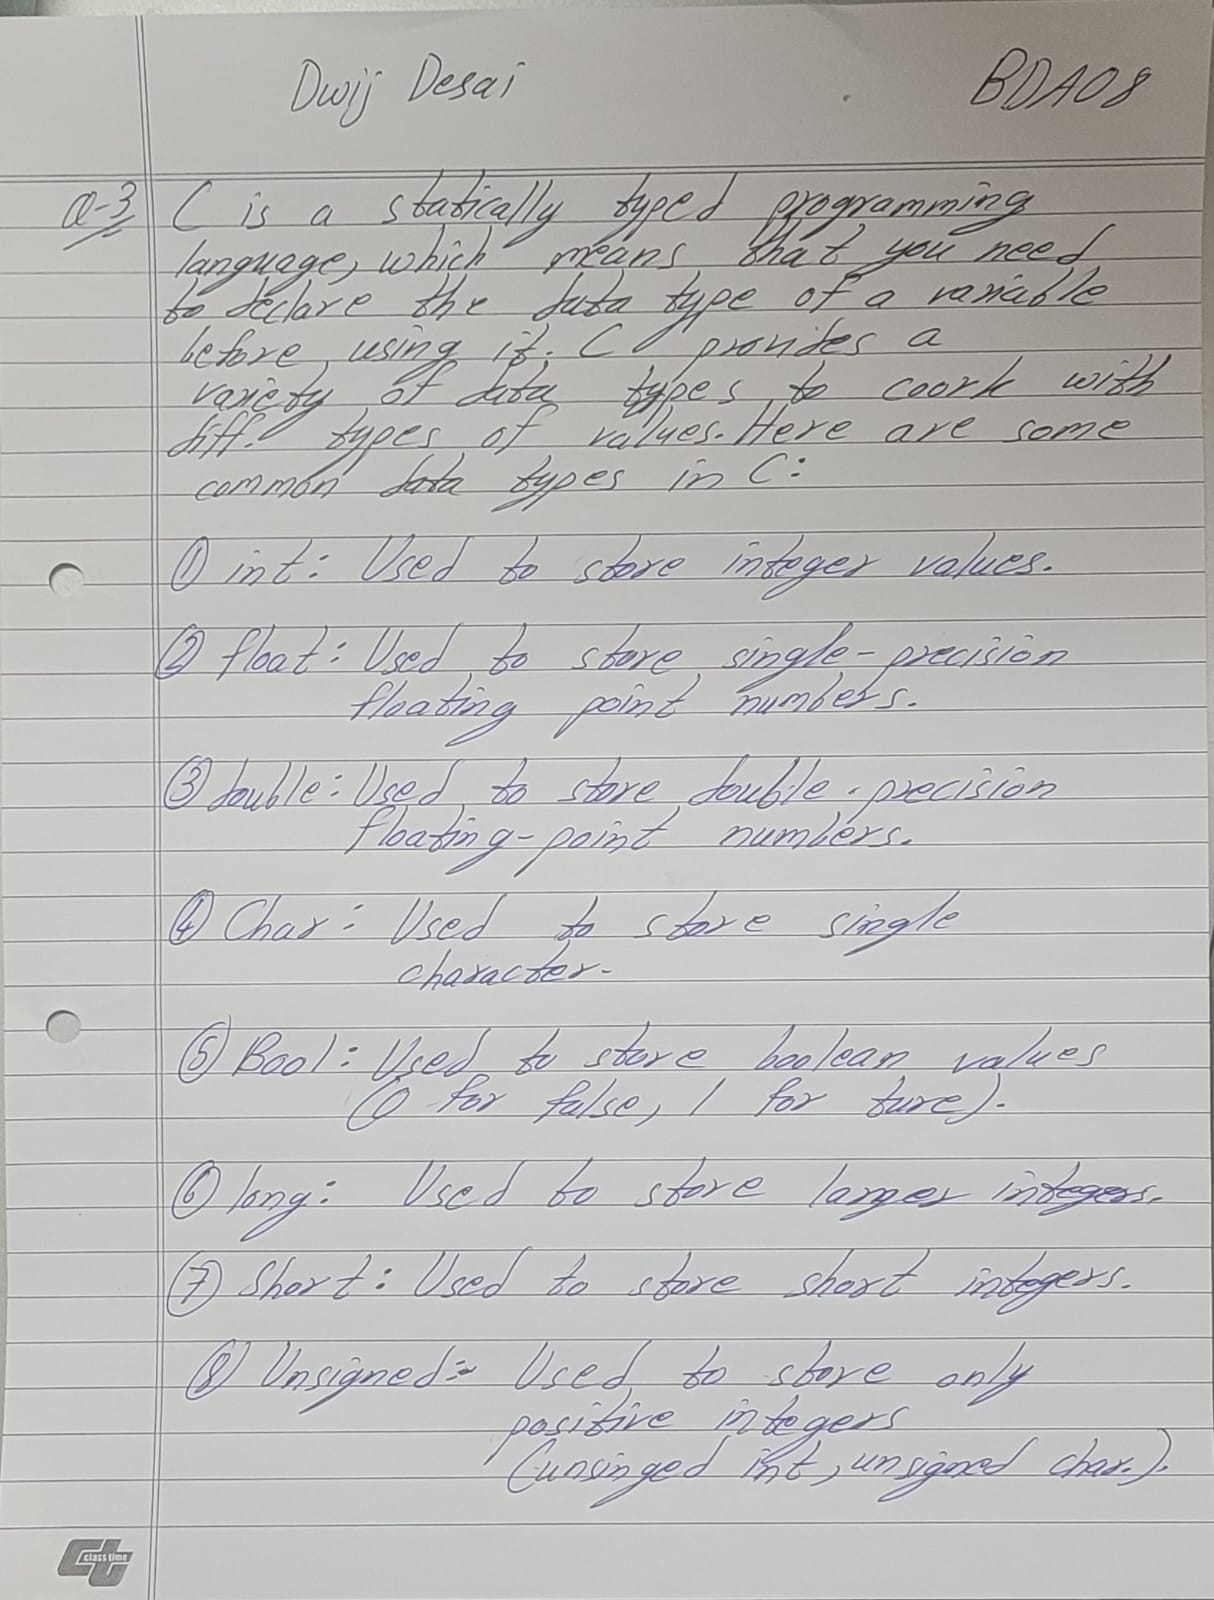 Dwij Desai BDA08
Q-3 C is a statically typed programming
language, which means that you need
to declare the data type of a variable
before using it. C provides a
variety of data types to coork with
diff. types of values. Here are some
common data types in C:
① int: Used to store integer values.
② float: Used to store single-precision
floating point numbers.
③ double: Used to store double-precision
floating-point numbers.
④ Char: Used to store single
character.
⑤ Bool: Used to store boolean values
(0 for false, 1 for ture).
⑥ long: Used to store larger integers.
⑦ Short: Used to store short integers.
⑧ Unsigned:- Used to store only
positive integers
(unsinged int, unsigned char.).
Ct class time